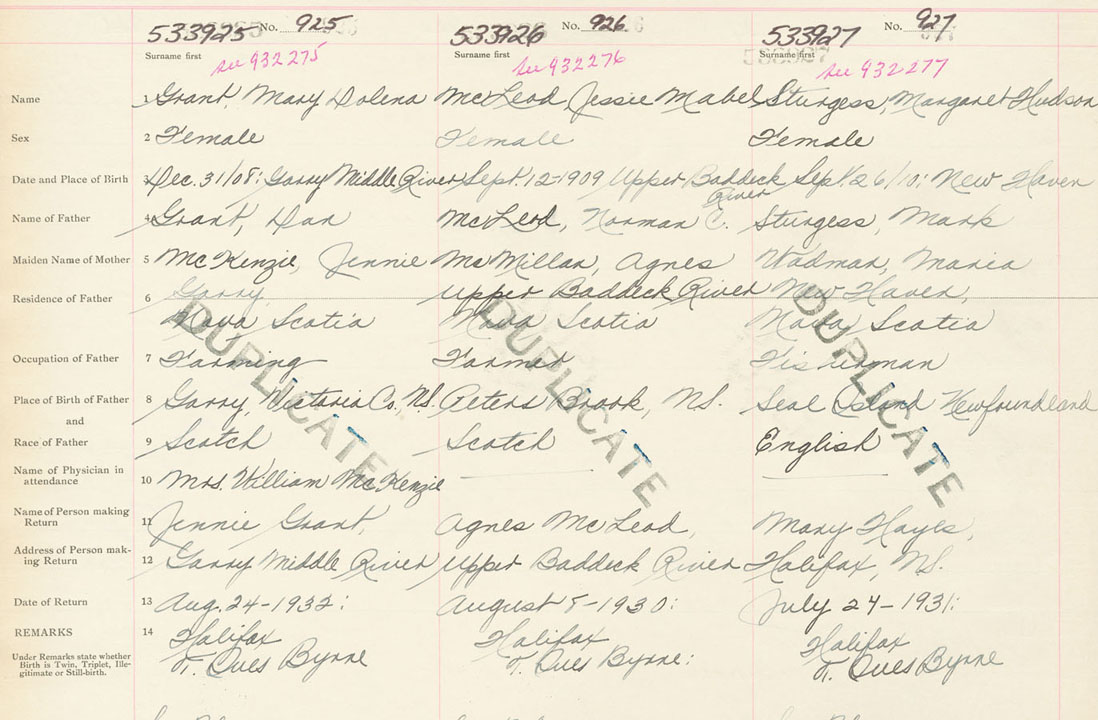 533925 No. 925 533926 No. 926 533927 No. 927
Surname first Surname first Surname first
see 932275 see 932276 see 932277
Name 1 Grant, Mary Dolena McLeod, Jessie Mabel Sturgess, Margaret Hudson
Sex 2 Female Female Female
Date and Place of Birth 3 Dec. 31/08: Garry Middle River Sept. 12-1909 Upper Baddeck Sept. 26/10: New Haven
River
Name of Father 4 Grant, Dan McLeod, Norman C. Sturgess, Mark
Maiden Name of Mother 5 McKenzie, Jennie McMillan, Agnes Wadman, Maria
Residence of Father 6 Garry, Upper Baddeck River New Haven,
Nova Scotia Nova Scotia Nova Scotia
DUPLICATE DUPLICATE DUPLICATE
Occupation of Father 7 Farming Farmer Fisherman
Place of Birth of Father 8 Garry, Victoria Co., N.S. Peters Brook, N.S. Seal Island Newfoundland
and
Race of Father 9 Scotch Scotch English
Name of Physician in
attendance 10 Mrs. William McKenzie
Name of Person making
Return 11 Jennie Grant, Agnes McLeod, Mary Hayes,
Address of Person mak-
ing Return 12 Garry Middle River Upper Baddeck River Halifax, N.S.
Date of Return 13 Aug. 24-1932: August 8-1930: July 24-1931:
REMARKS 14 Halifax Halifax Halifax
Under Remarks state whether
Birth is Twin, Triplet, Ille-
gitimate or Still-birth.
Byrne Byrne: Byrne